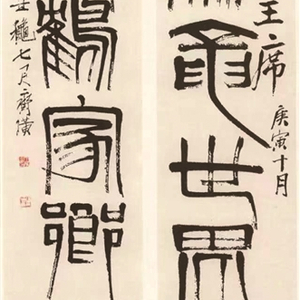 主席
庚寅十月
龍世界
鶴家鄉
穐七
齊璜